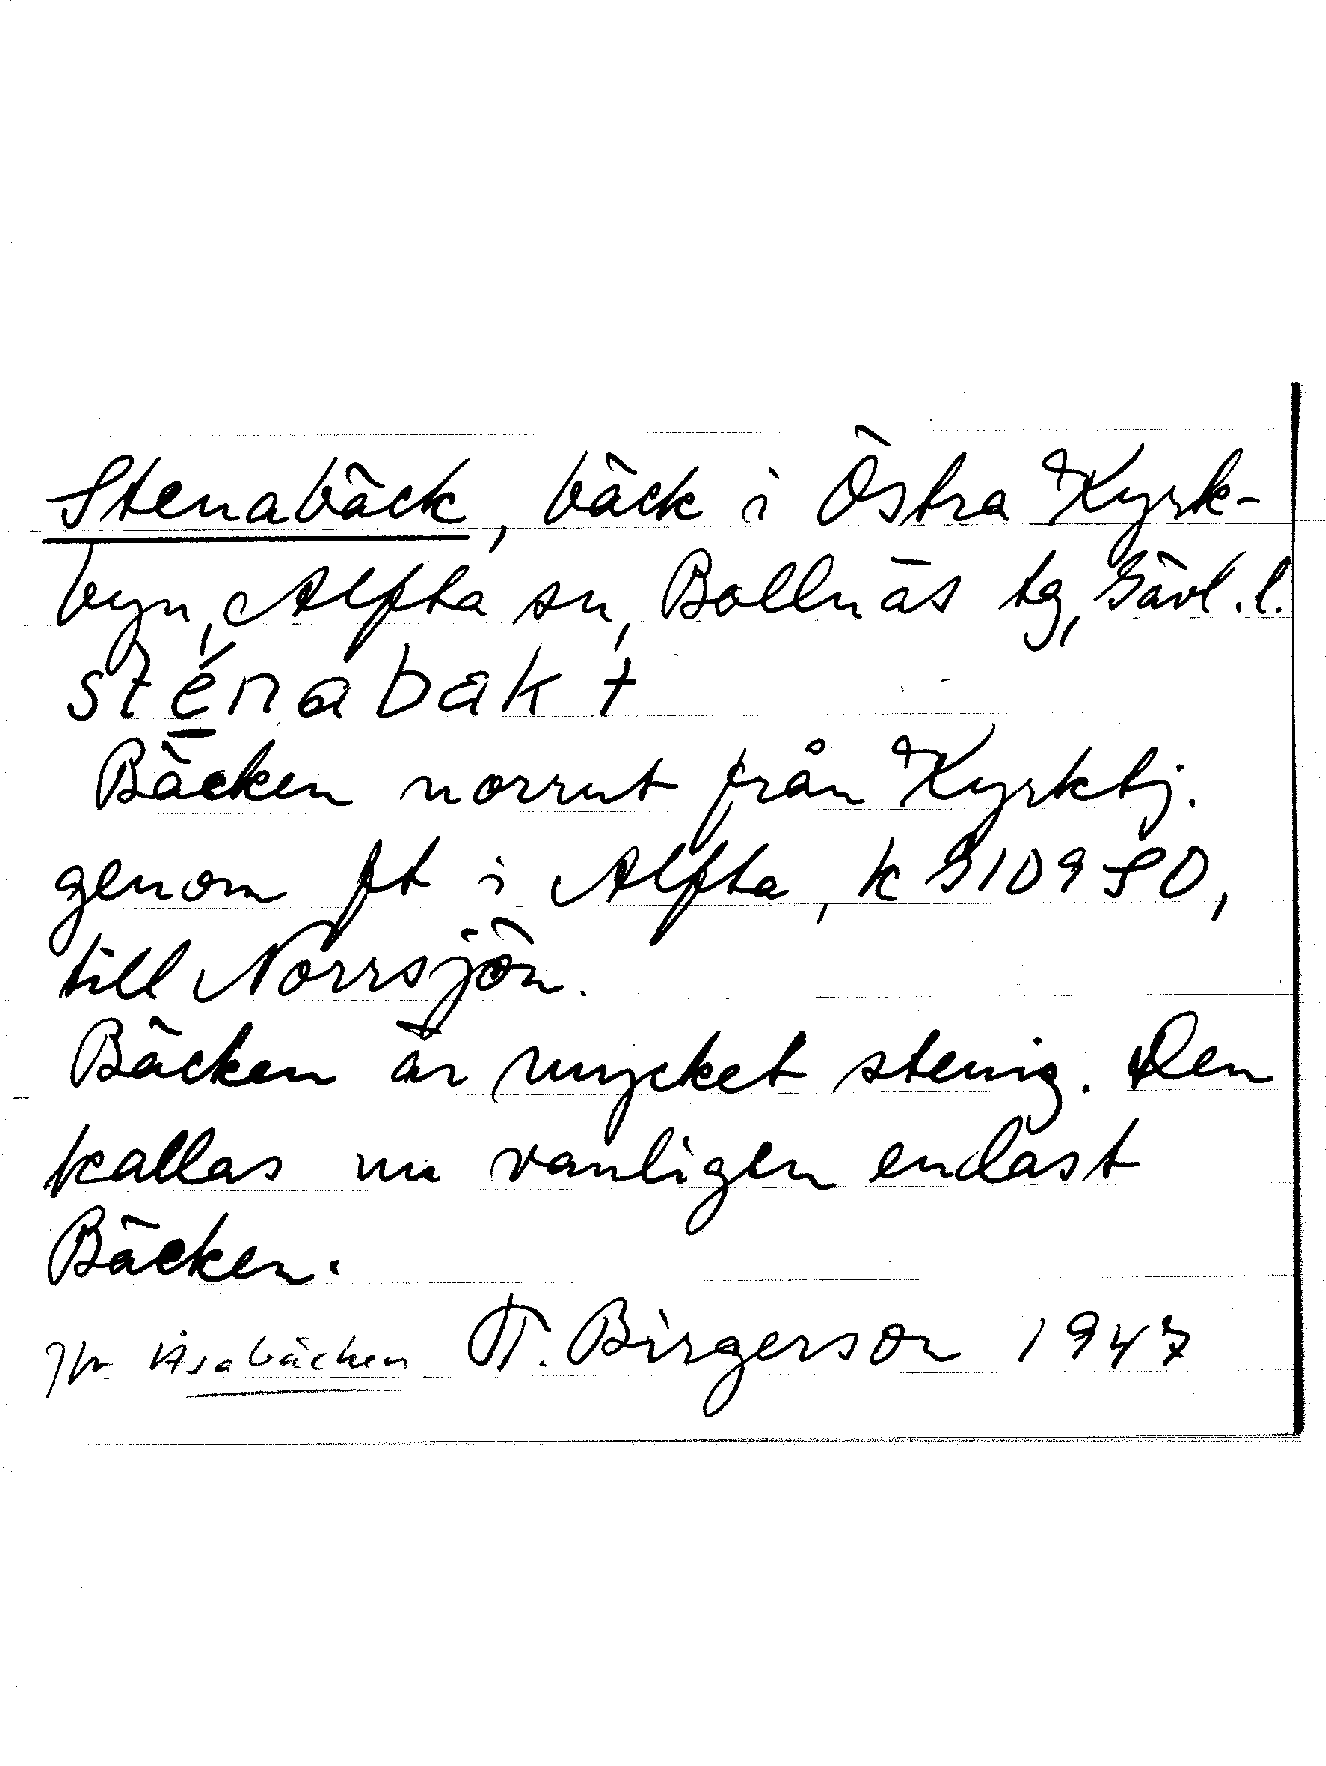 Stenabäck, bäck i Östra Kyrk-
byn, Alfta sn, Bollnäs tg, Gävl.l.
sténabak t
Bäcken norrut från Kyrktj.
genom ft i Alfta, k
till Norrsjön.
Bäcken är mycket stenig. Den
kallas nu vanligen endast
Bäcken.
Jfr Åsabäcken T. Birgerson 1947